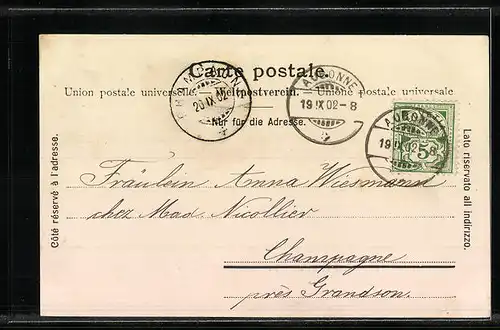 Carte postale.
Union postale universelle. — Weltpostverein. — Unione postale universale
Nur für die Adresse.
CHAMPAGNE
20.IX.02
AUBONNE
19.IX.02-8
AUBONNE
19.IX.02
5
Côté réservé à l'adresse.
Lato riservato all indirizzo.
Fräulein Anna Wiesmann
chez Mad. Nicollier
Champagne
près Grandson.